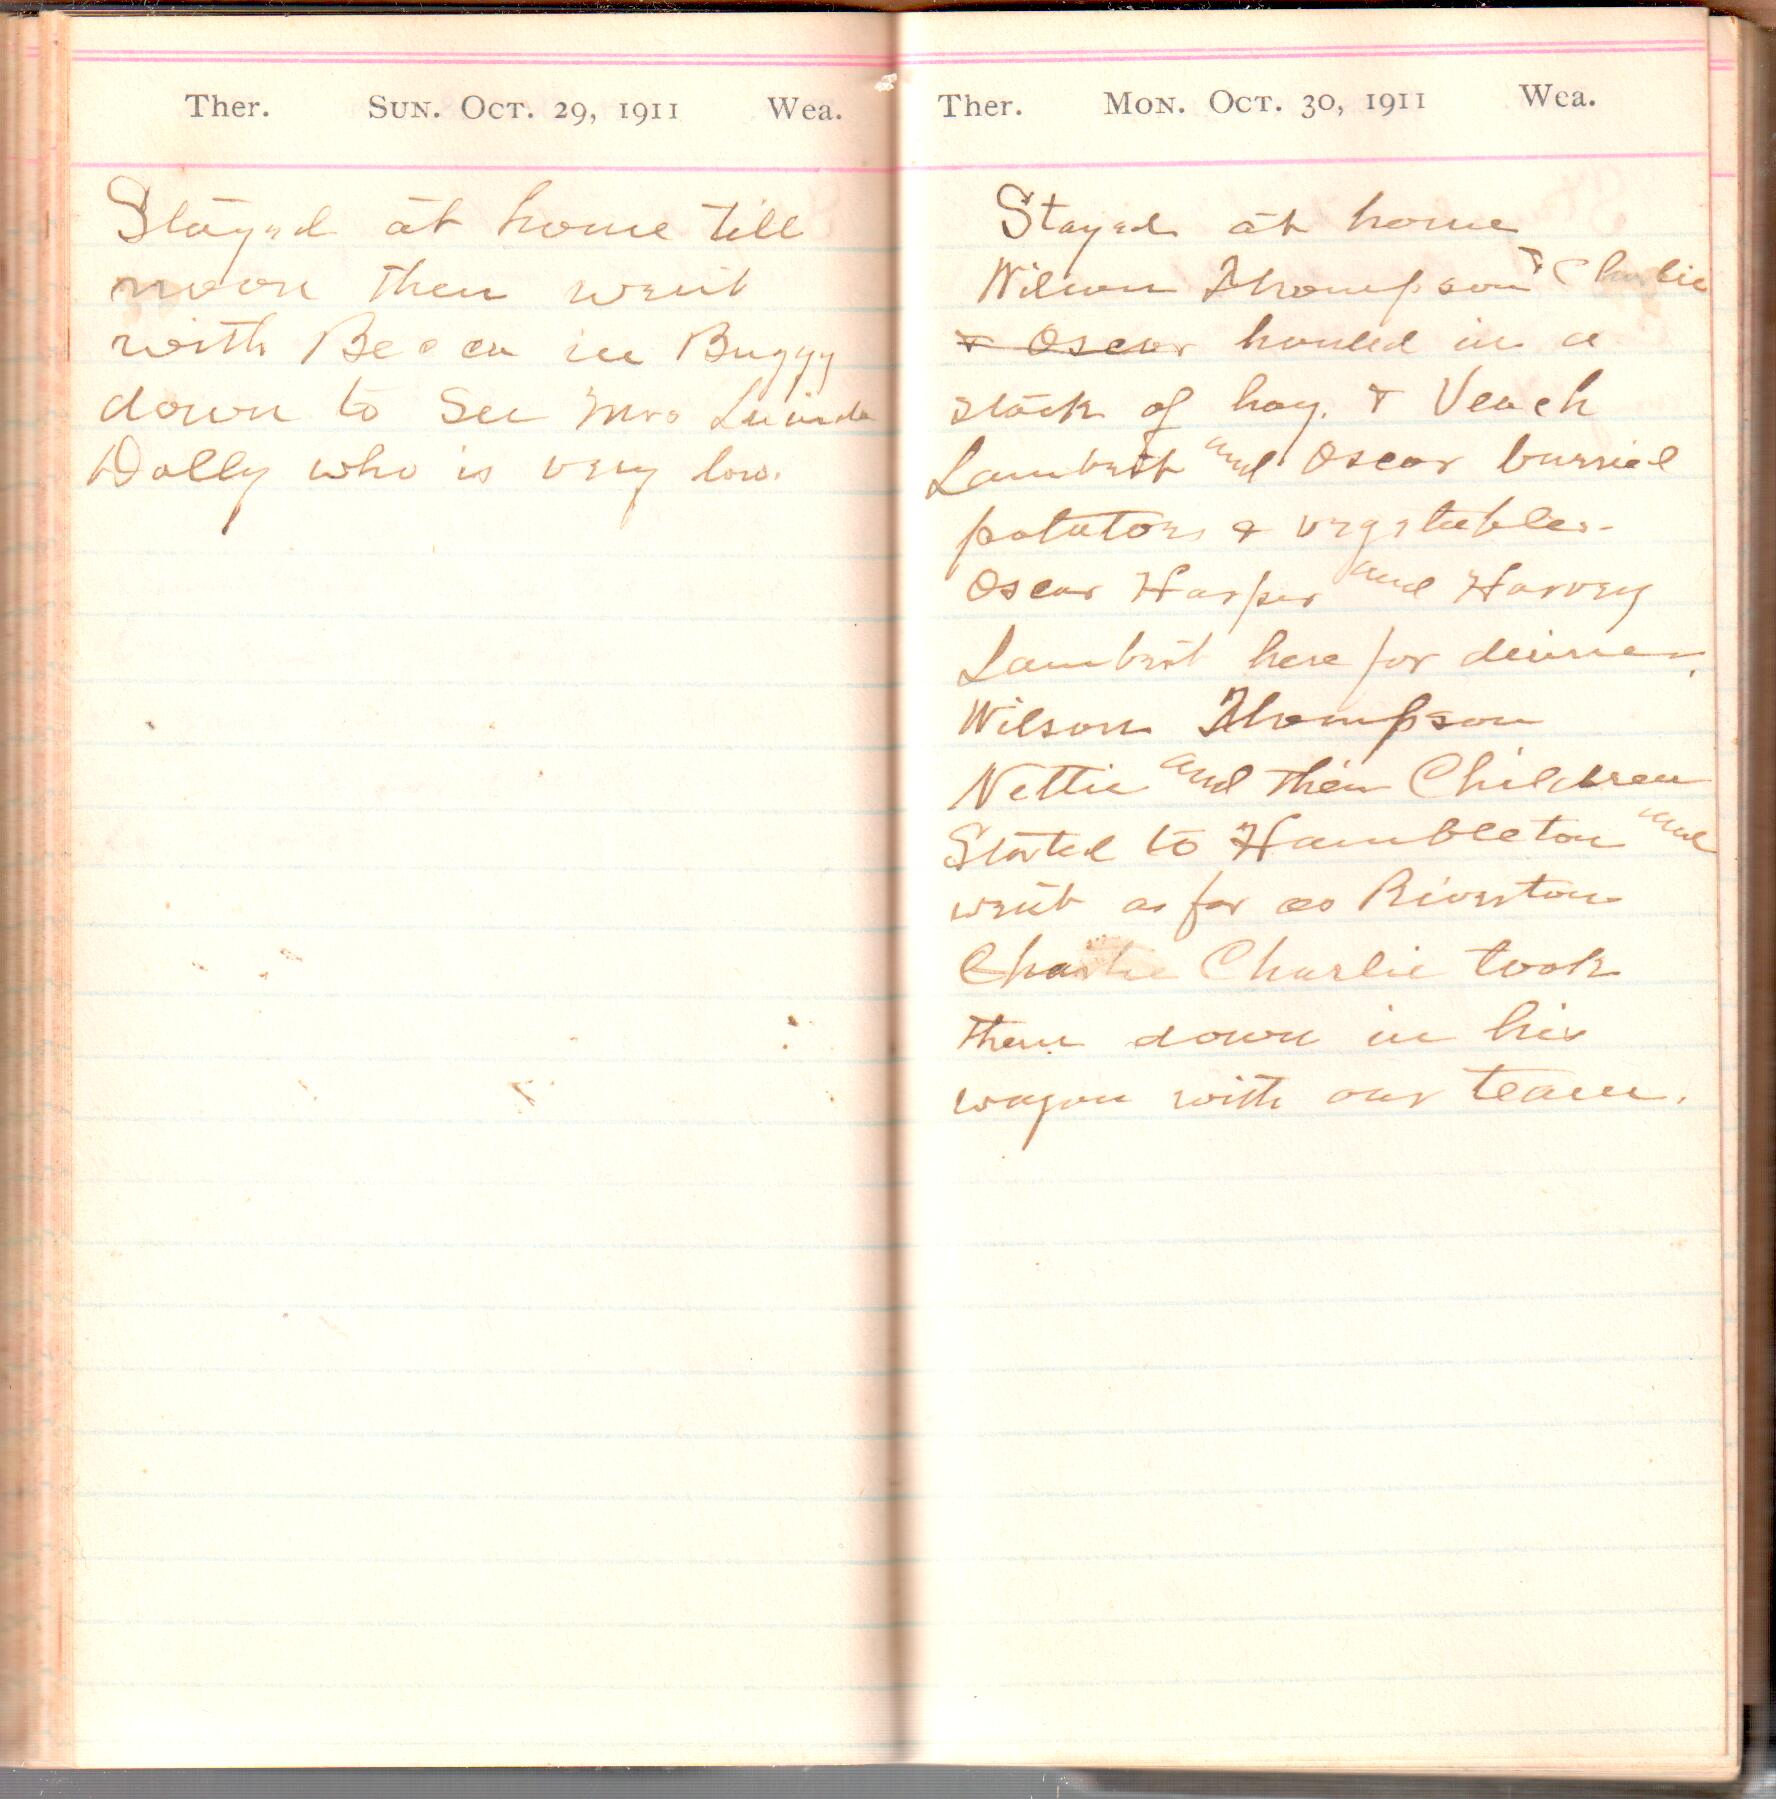 Ther. Sun. Oct. 29, 1911 Wea.
Stayed at home till
noon then went
with Becca in Buggy
down to See Mrs Lucinda
Dolly who is very low.
Ther. Mon. Oct. 30, 1911 Wea.
Stayed at home
Wilson Thompson & Charlie
& Oscar hauled in a
stack of hay. & Veach
Lambert and Oscar burried
potatoes & vegetables.
Oscar Harper and Harvey
Lambert here for dinner.
Wilson Thompson
Nettie and their Children
Started to Hambleton and
went as far as Riverton
Charlie Charlie took
them down in his
wagon with our team.